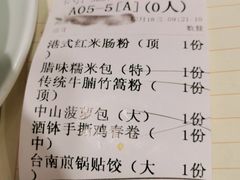 A05-5[A](0人)
数量
港式红米肠粉（顶） 1份
腊味糯米包（特） 1份
传统牛腩竹篙粉（顶） 1份
中山菠萝包（大） 1份
酒钵手撕鸡春卷（中） 1份
台南煎锅贴饺（大 1份